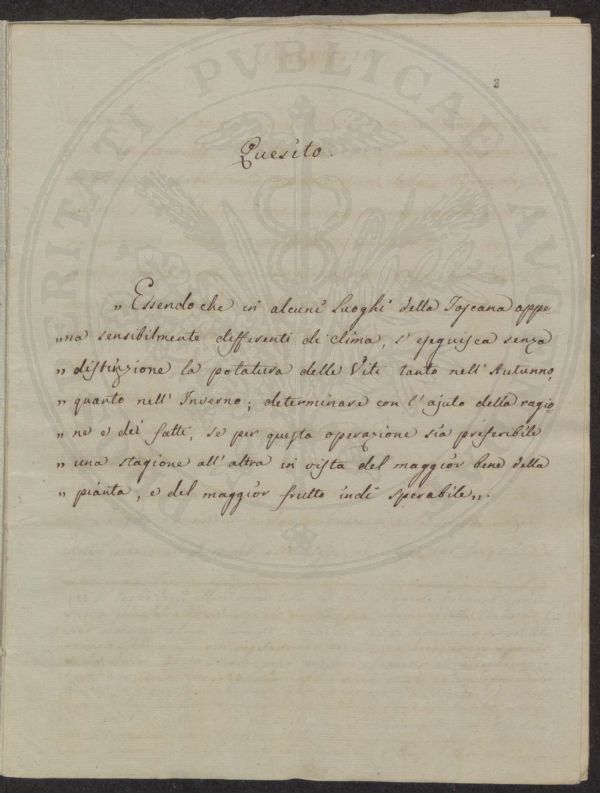 3
Quesito.
„ Essendo che in alcuni Luoghi della Toscana appe
„ na sensibilmente differenti di clima, s'eseguisca senza
„ distinzione la potatura delle Viti tanto nell'Autunno,
„ quanto nell'Inverno; determinare con l'ajuto della ragio
„ ne e dei fatti, se per questa operazione sia preferibile
„ una stagione all'altra in vista del maggior bene della
„ pianta, e del maggior frutto indi sperabile „.